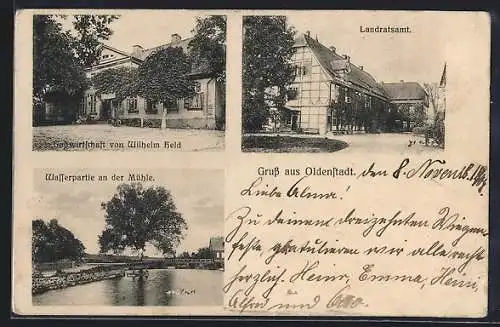 Gastwirtschaft von Wilhelm Held
Landratsamt.
Wasserpartie an der Mühle.
Gruß aus Oldenstadt. den 8. Novemb.
Liebe Alma!
Zu deinem dreizehnten Wiegen
feste gratulieren wir alle recht
herzlich. Heinr, Emma, Heini,
Alfred und Otto.